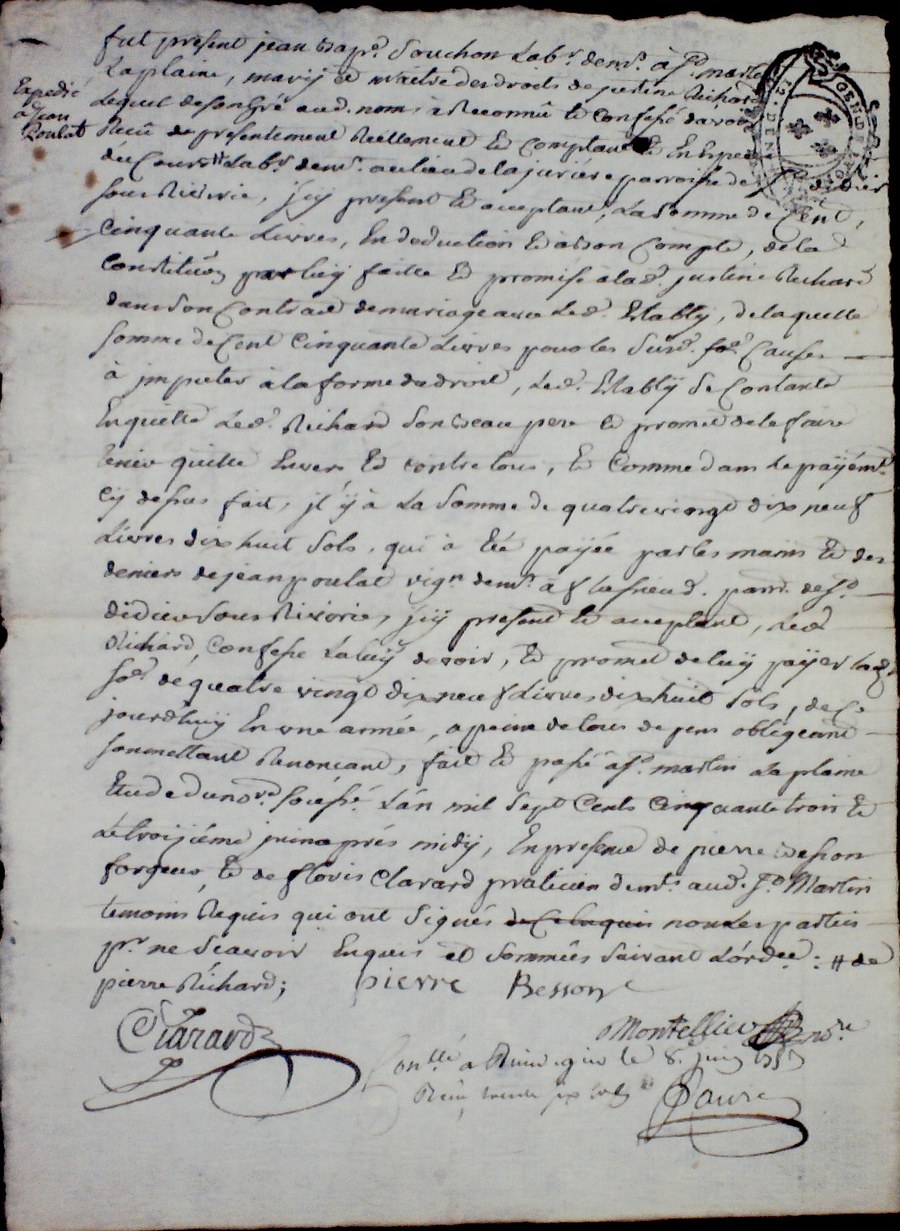 fut présent jean bap.e Souchon Lab.r dem.t à S.t martin
Laplaine, mary et maitre des droits de justine Richard
Expedié
a jean
Poulat
Lequel de son gré aud. nom, a Reconnû et Confessé d'avoir
Reçû de presentement Reellement et Comptant et En Espece
de Cours # Lab.r dem.t au lieu de la jurière parroisse de S.t didier
sous Riverie, jcy present et acceptant, La Somme de Cent
Cinquante Livres, En deduction et à bon Compte, de la
Constitûon par luy faitte et promise à lad. justine Richard
dans Son Contract de mariage avec Led. Etably, de laquelle
Somme de Cent Cinquante Livres pour les Susd. Causes
à jmputer à la forme du droit, Led. Etably Se Contante
En quitte Led. Richard Son beau pere et promet de le faire
tenir quitte Envers et contre tous, et Comme dans Le payém.t
Cy dessus fait, jl y à La Somme de quatre vingt dix neuf
Livres dix huit Sols, qui à été payée par les mains et des
deniers de jean poulat vign. dem.t à parr. de S.t
didier Sous Riverie, jcy present et acceptant, Led.
Richard, Confesse La luy devoir, et promet de luy payer lad.
So.e de quatre vingt dix neuf Livres dix huit Sols, de Ce
jourdhuy En une année, a peine de tous depens obligeant
Soumettant Renonçant, fait et passé à S.t martin Laplaine
Etude du no.re Soussné. L'an mil Sept Cents Cinquante trois et
Le troizième juin après midy, En presence de pierre besson
forgeur, et de floris Clarard praticien dem.ts aud. S.t Martin
temoins Requis qui ont Signés non Les parties
p.r ne Scavoir Enquis et Sommées Suivant L'ord.ce : # de
pierre Richard;
pierre Besson
Clarard
Montellier no.re
Con.llé a Rive de gier le 8 juin 1753
Reçu trente six sols
Faure
GEN
DEN